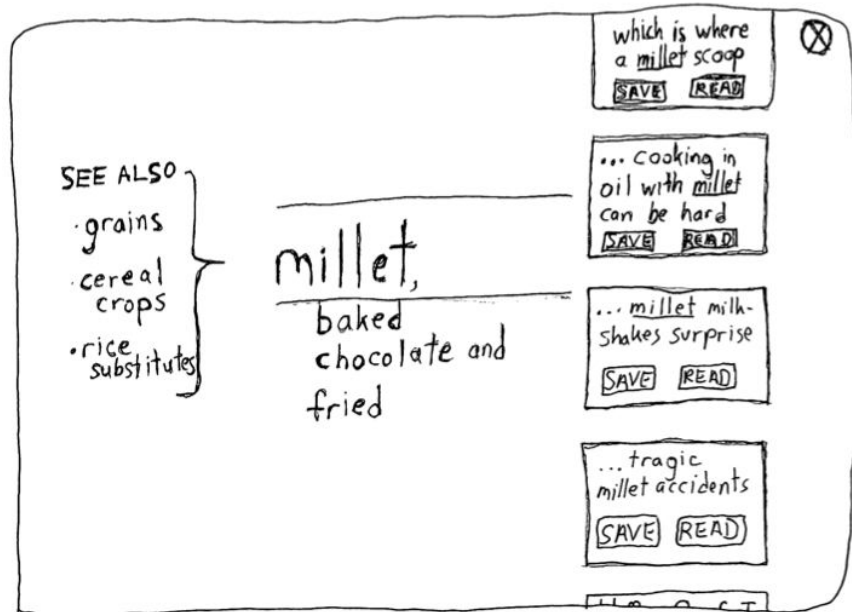 SEE ALSO
· grains
· cereal
crops
· rice
substitutes
millet,
baked
chocolate and
fried
which is where
a millet scoop
SAVE READ
... cooking in
oil with millet
can be hard
SAVE READ
... millet milk-
shakes surprise
SAVE READ
... tragic
millet accidents
SAVE READ